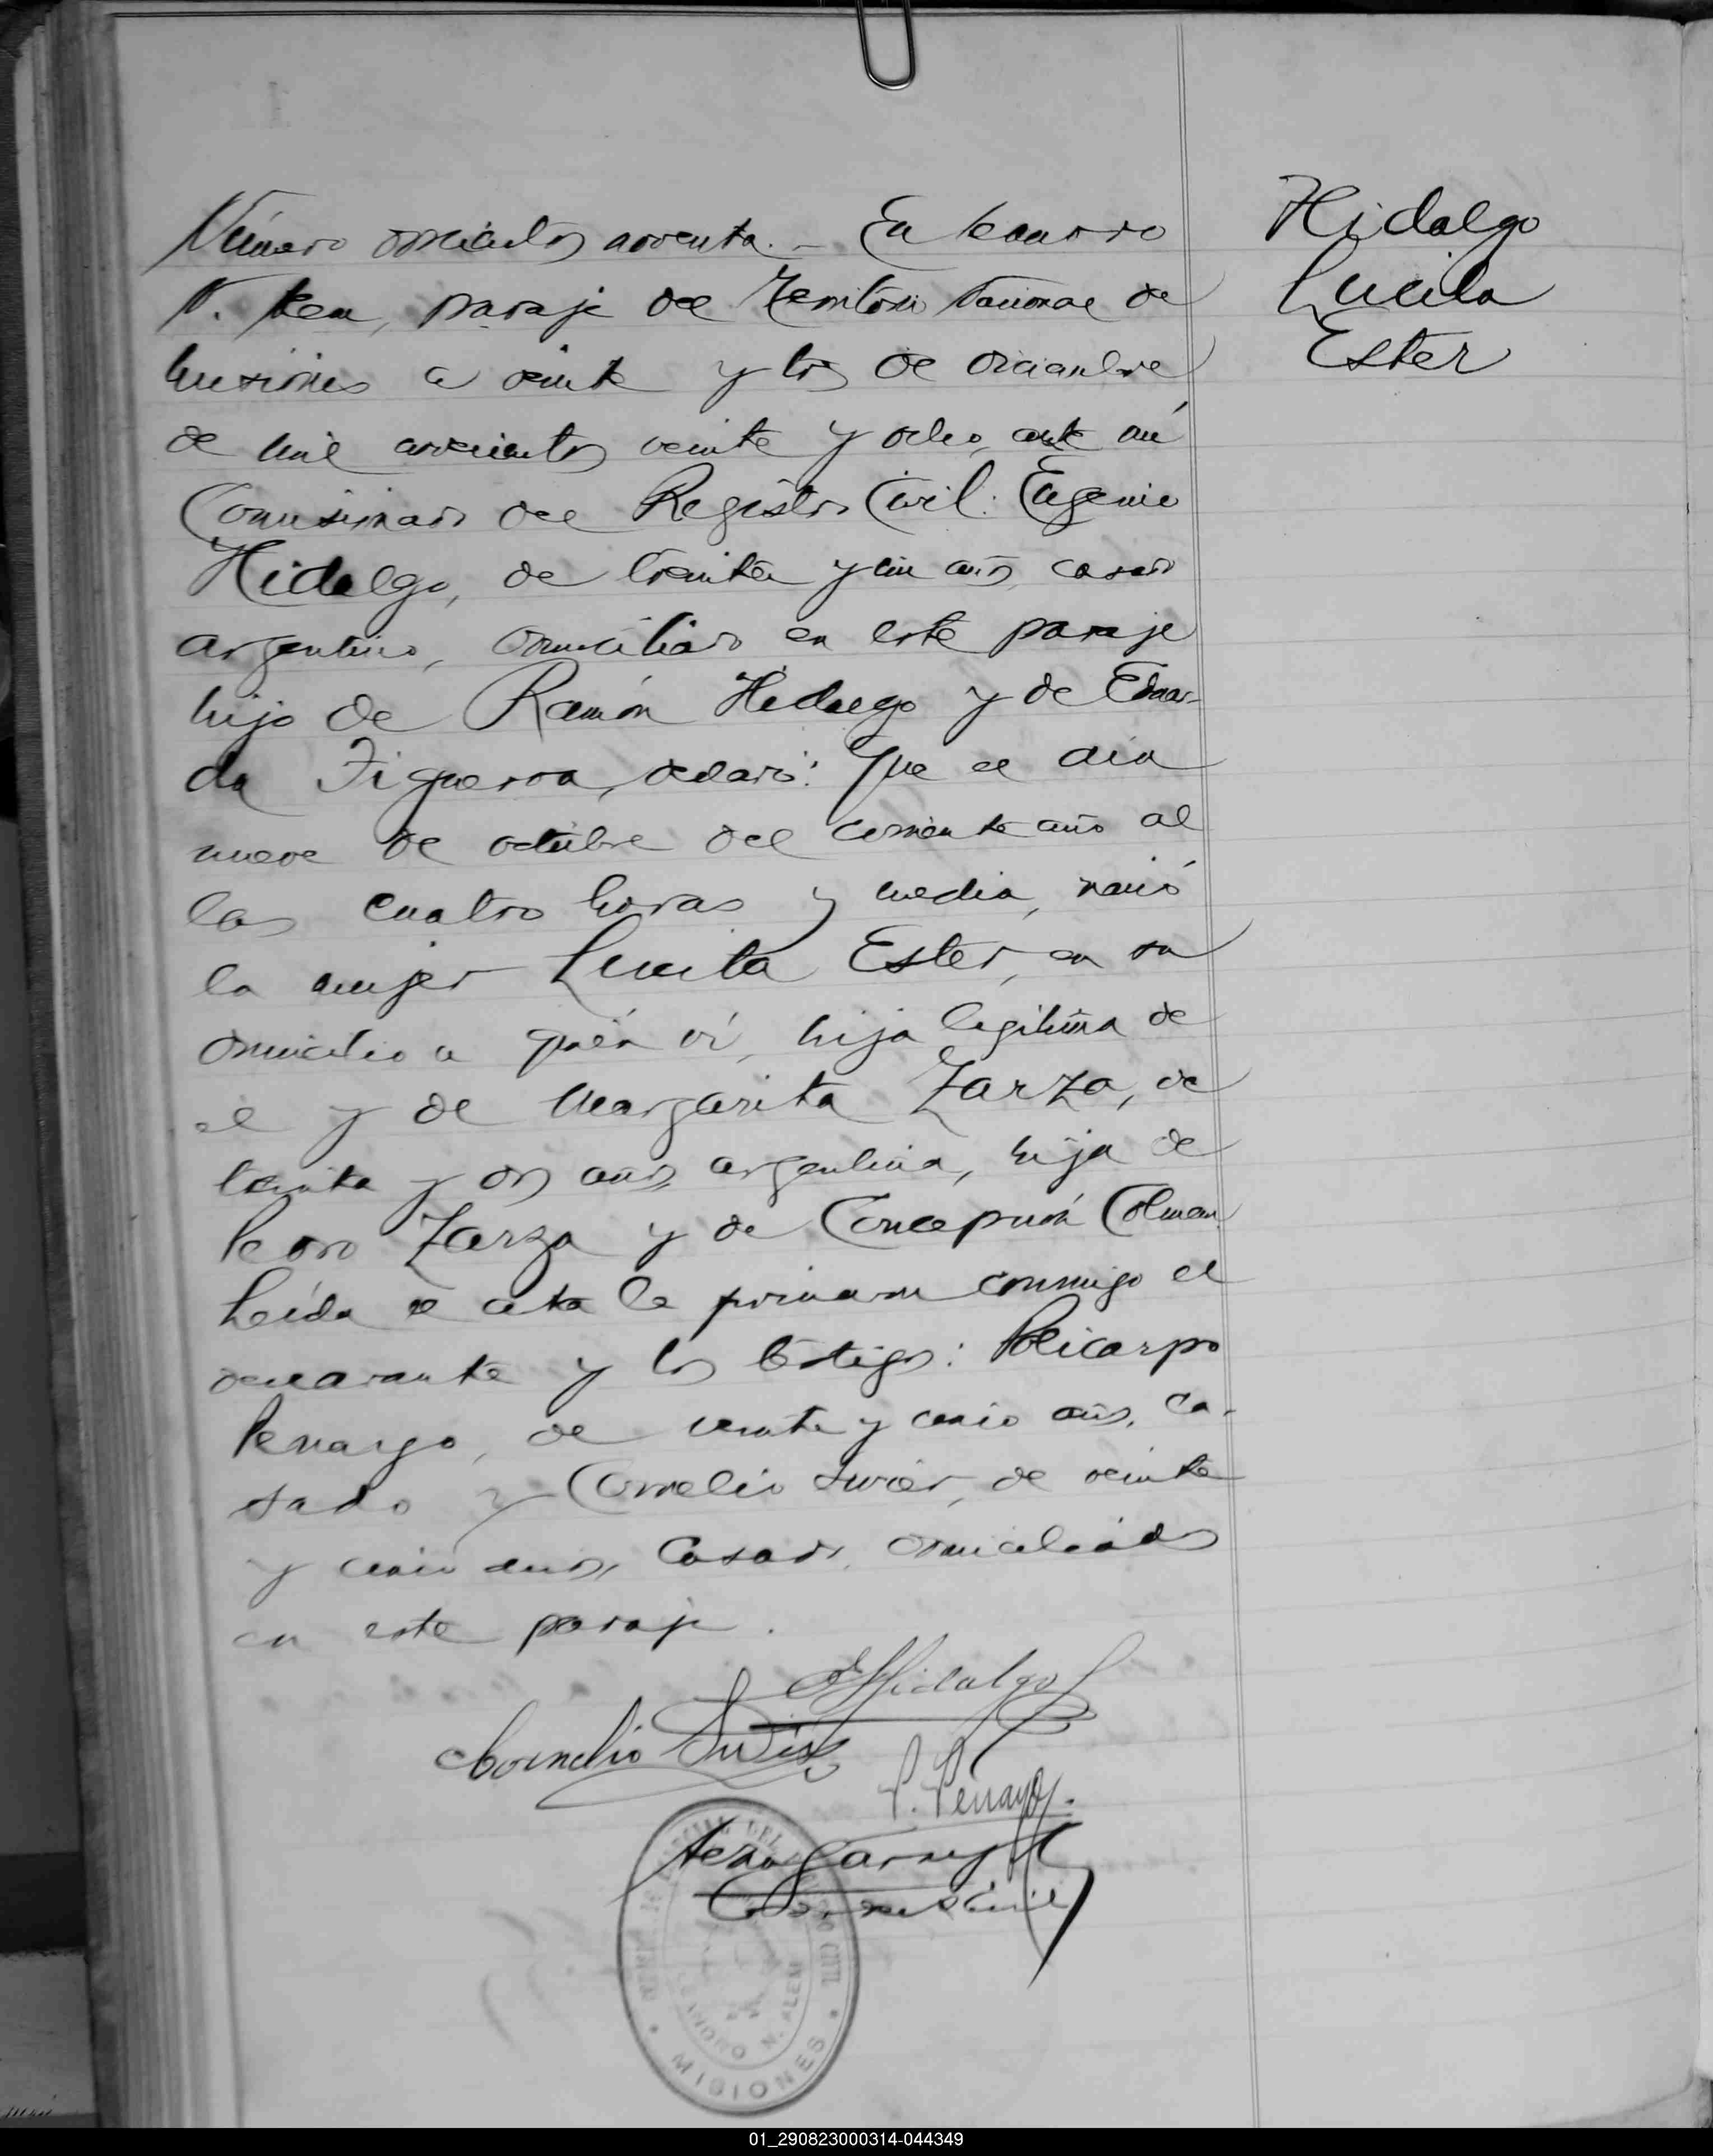 Número doscientos noventa. - En Leandro
N. Alem, paraje del Territorio Nacional de
Misiones a veinte y tres de diciembre
de mil novecientos veinte y ocho, ante mí
Comisionado del Registro Civil: Eugenio
Hidalgo, de treinta y un años, casado
argentino, domiciliado en este paraje
hijo de Ramón Hidalgo y de Eduar-
da Figueroa, declaró: Que el día
nueve de octubre del corriente año a
las cuatro horas y media, nació
la mujer Lucila Ester, en su
domicilio a quién ví, hija legítima de
el y de Margarita Zarza, de
treinta y dos años, argentina, hija de
Pedro Zarza y de Concepción Colman
Leída el acta la firmaron conmigo el
declarante y los testigos: Policarpo
Penayo, de veinte y cinco años, ca-
sado y Cornelio, de veinte
y cinco años, casado, domiciliados
en este paraje.
Hidalgo
Lucila
Ester
EHidalgo
Cornelio
P. Penayo.
REGISTRO CIVIL
LEANDRO N. ALEM
MISIONES
01_290823000314-044349